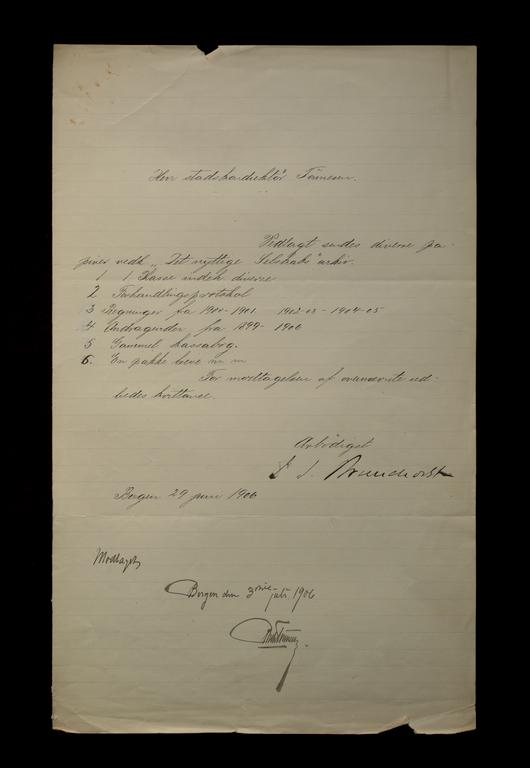 Herr stadskonduktør Tønnesen.
Vedlagt sendes diverse pa-
pirer vedk. "Det nyttige Selskabs" arkiv.
1 1 Kasse indeh diverse
2 Forhandlingsprotokol
3 Regninger fra 1900-1901 1902-03-1904-05
4 Andragender fra 1899-1906
5 Gammel kassabog.
6. En pakke breve m m
For modtagelsen af ovennævnte ud-
bedes kvittance.
Ærbødigst
J. Brunchorst
Bergen 29 juni 1906
Modtaget
Bergen den 3die juli 1906